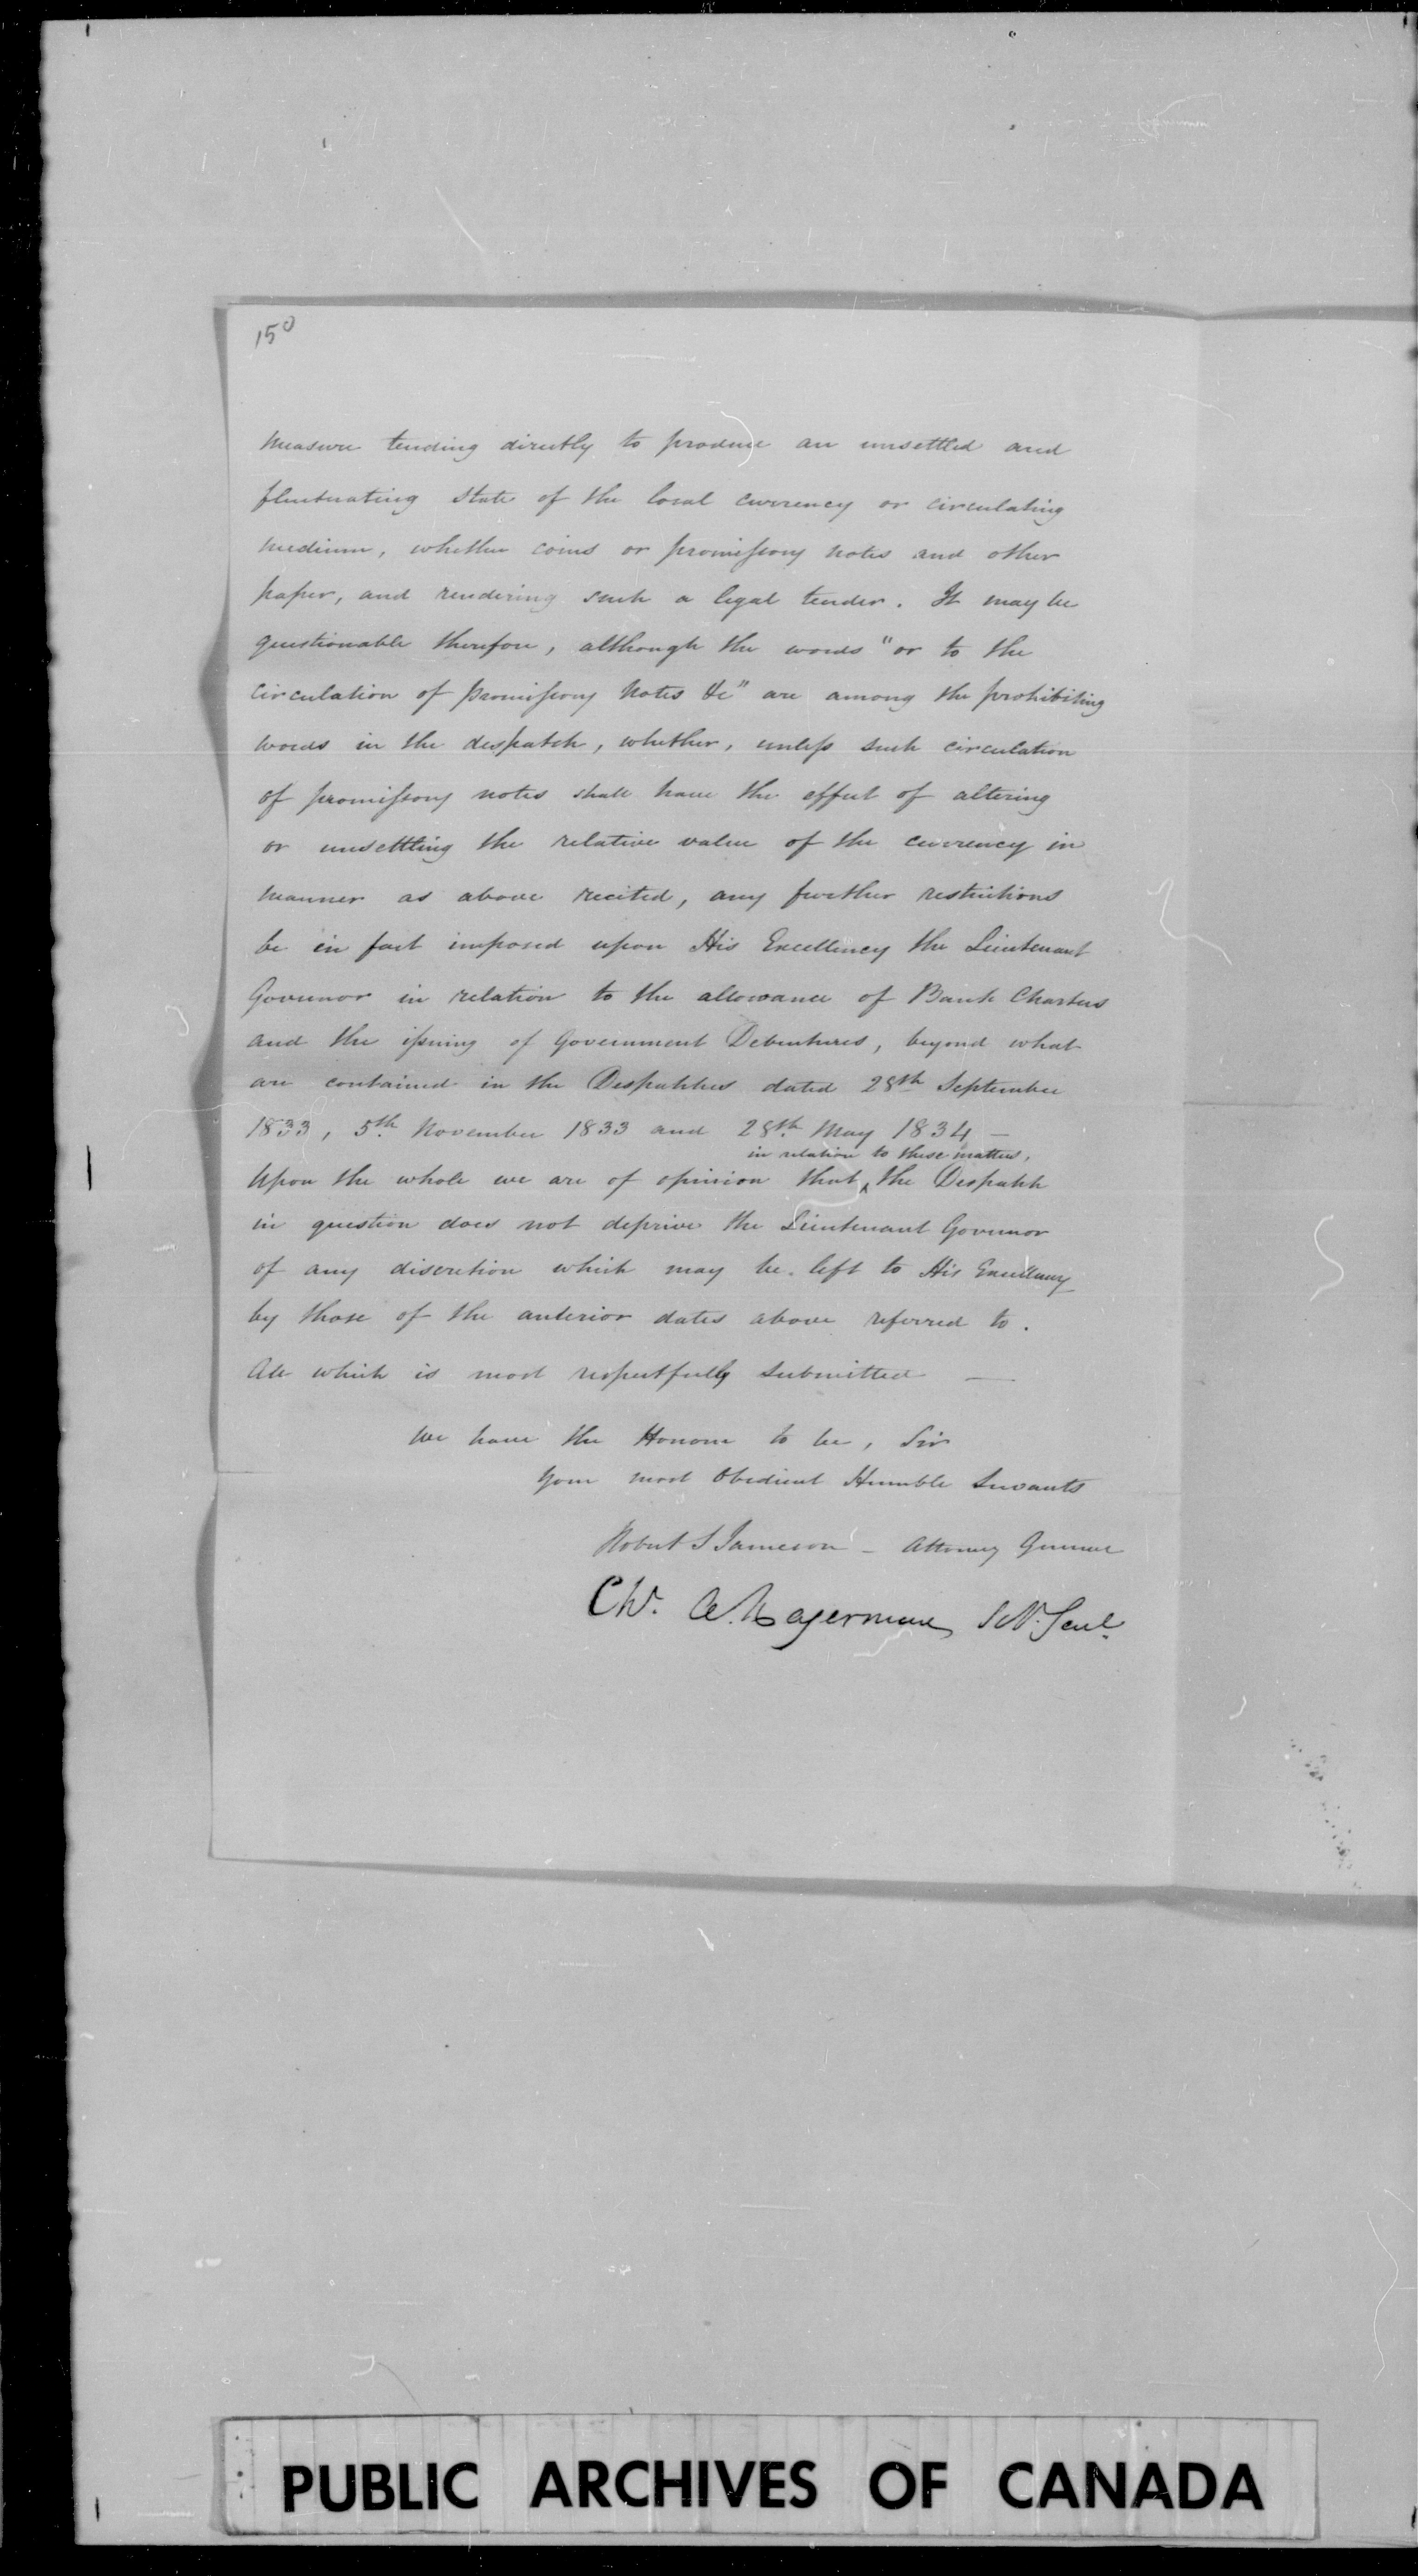 150
measure tending directly to produce an unsettled and
fluctuating state of the local currency or circulating
medium, whether coins or promissory notes and other
paper, and rendering such a legal tender. It may be
questionable therefore, although the words "or to the
circulation of promissory notes &c" are among the prohibiting
words in the despatch, whether, unless such circulation
of promissory notes shall have the effect of altering
or unsettling the relative value of the currency in
manner as above recited, any further restrictions
be in fact imposed upon His Excellency the Lieutenant
Governor in relation to the allowance of Bank Charters
and the issuing of Government Debentures, beyond what
are contained in the Despatches dated 28th September
1833, 5th November 1833 and 28th May 1834 —
in relation to these matters,
Upon the whole we are of opinion that ‸ the Despatch
in question does not deprive the Lieutenant Governor
of any discretion which may be left to His Excellency
by those of the anterior dates above referred to.
All which is most respectfully submitted —
We have the Honour to be, Sir
Your most Obedient Humble Servants
Robert S Jameson - Attorney General
Chr. A. Hagerman Solr. Genl.
PUBLIC ARCHIVES OF CANADA